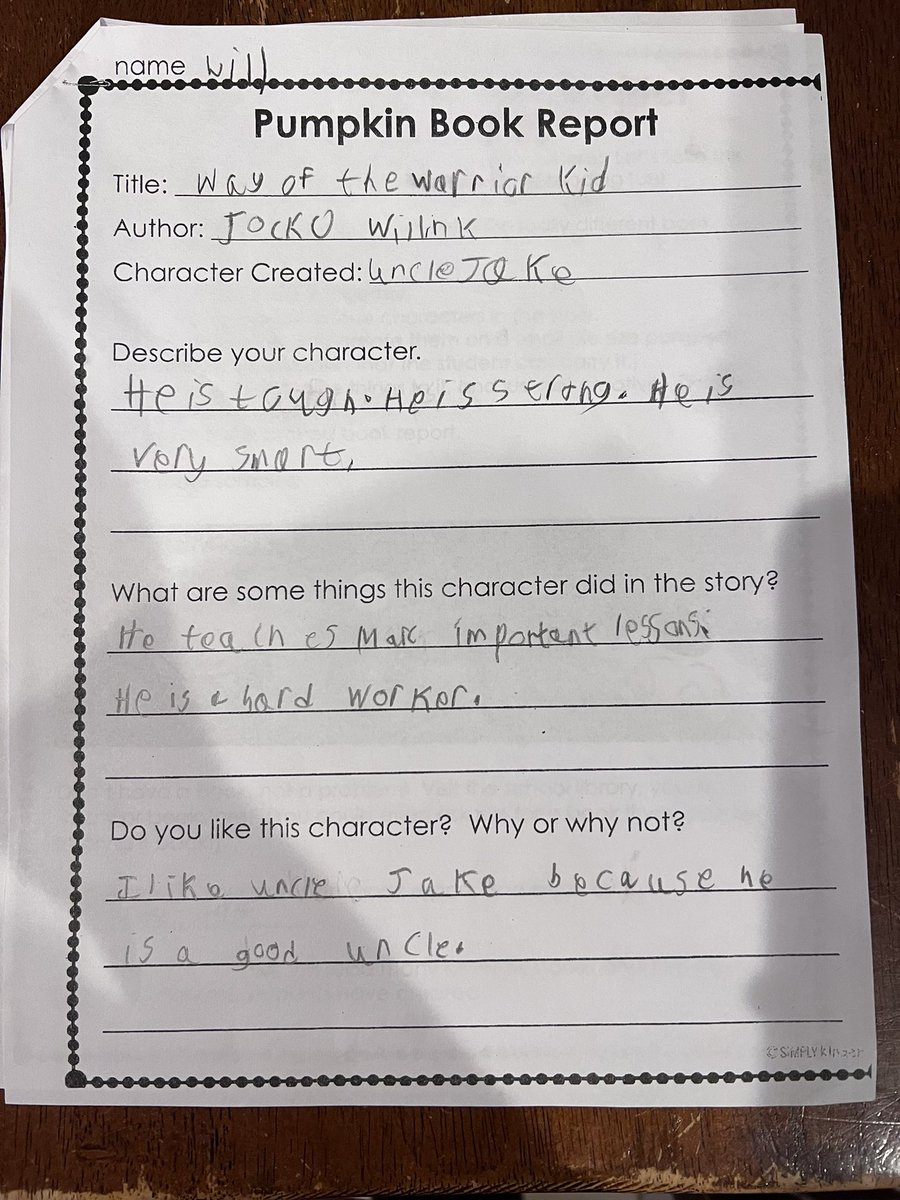 name Will
Pumpkin Book Report
Title: Way of the Warrior Kid
Author: JOCKO Willink
Character Created: uncle Jake
Describe your character.
He is tough. He is strong. He is
very smart.
What are some things this character did in the story?
He teaches Marc important lessons.
He is a hard worker.
Do you like this character? Why or why not?
I like uncle Jake because he
is a good uncle.